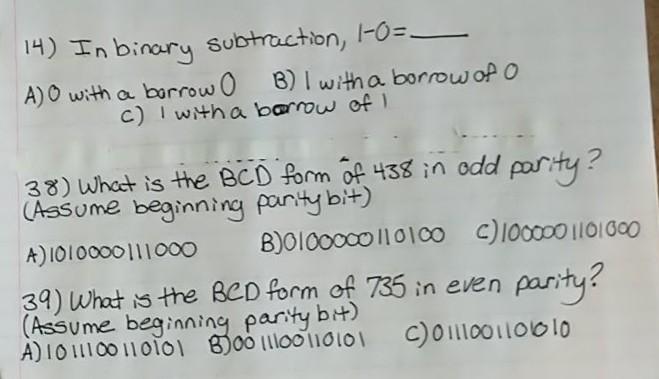 14) In binary subtraction, 1-0=____
A) 0 with a borrow 0 B) 1 with a borrow of 0
C) 1 with a borrow of 1
38) What is the BCD form of 438 in odd parity?
(Assume beginning parity bit)
A) 1010000111000 B) 0100000110100 C) 1000001101000
39) What is the BCD form of 735 in even parity?
(Assume beginning parity bit)
A) 1011100110101 B) 0011100110101 C) 0111001101010